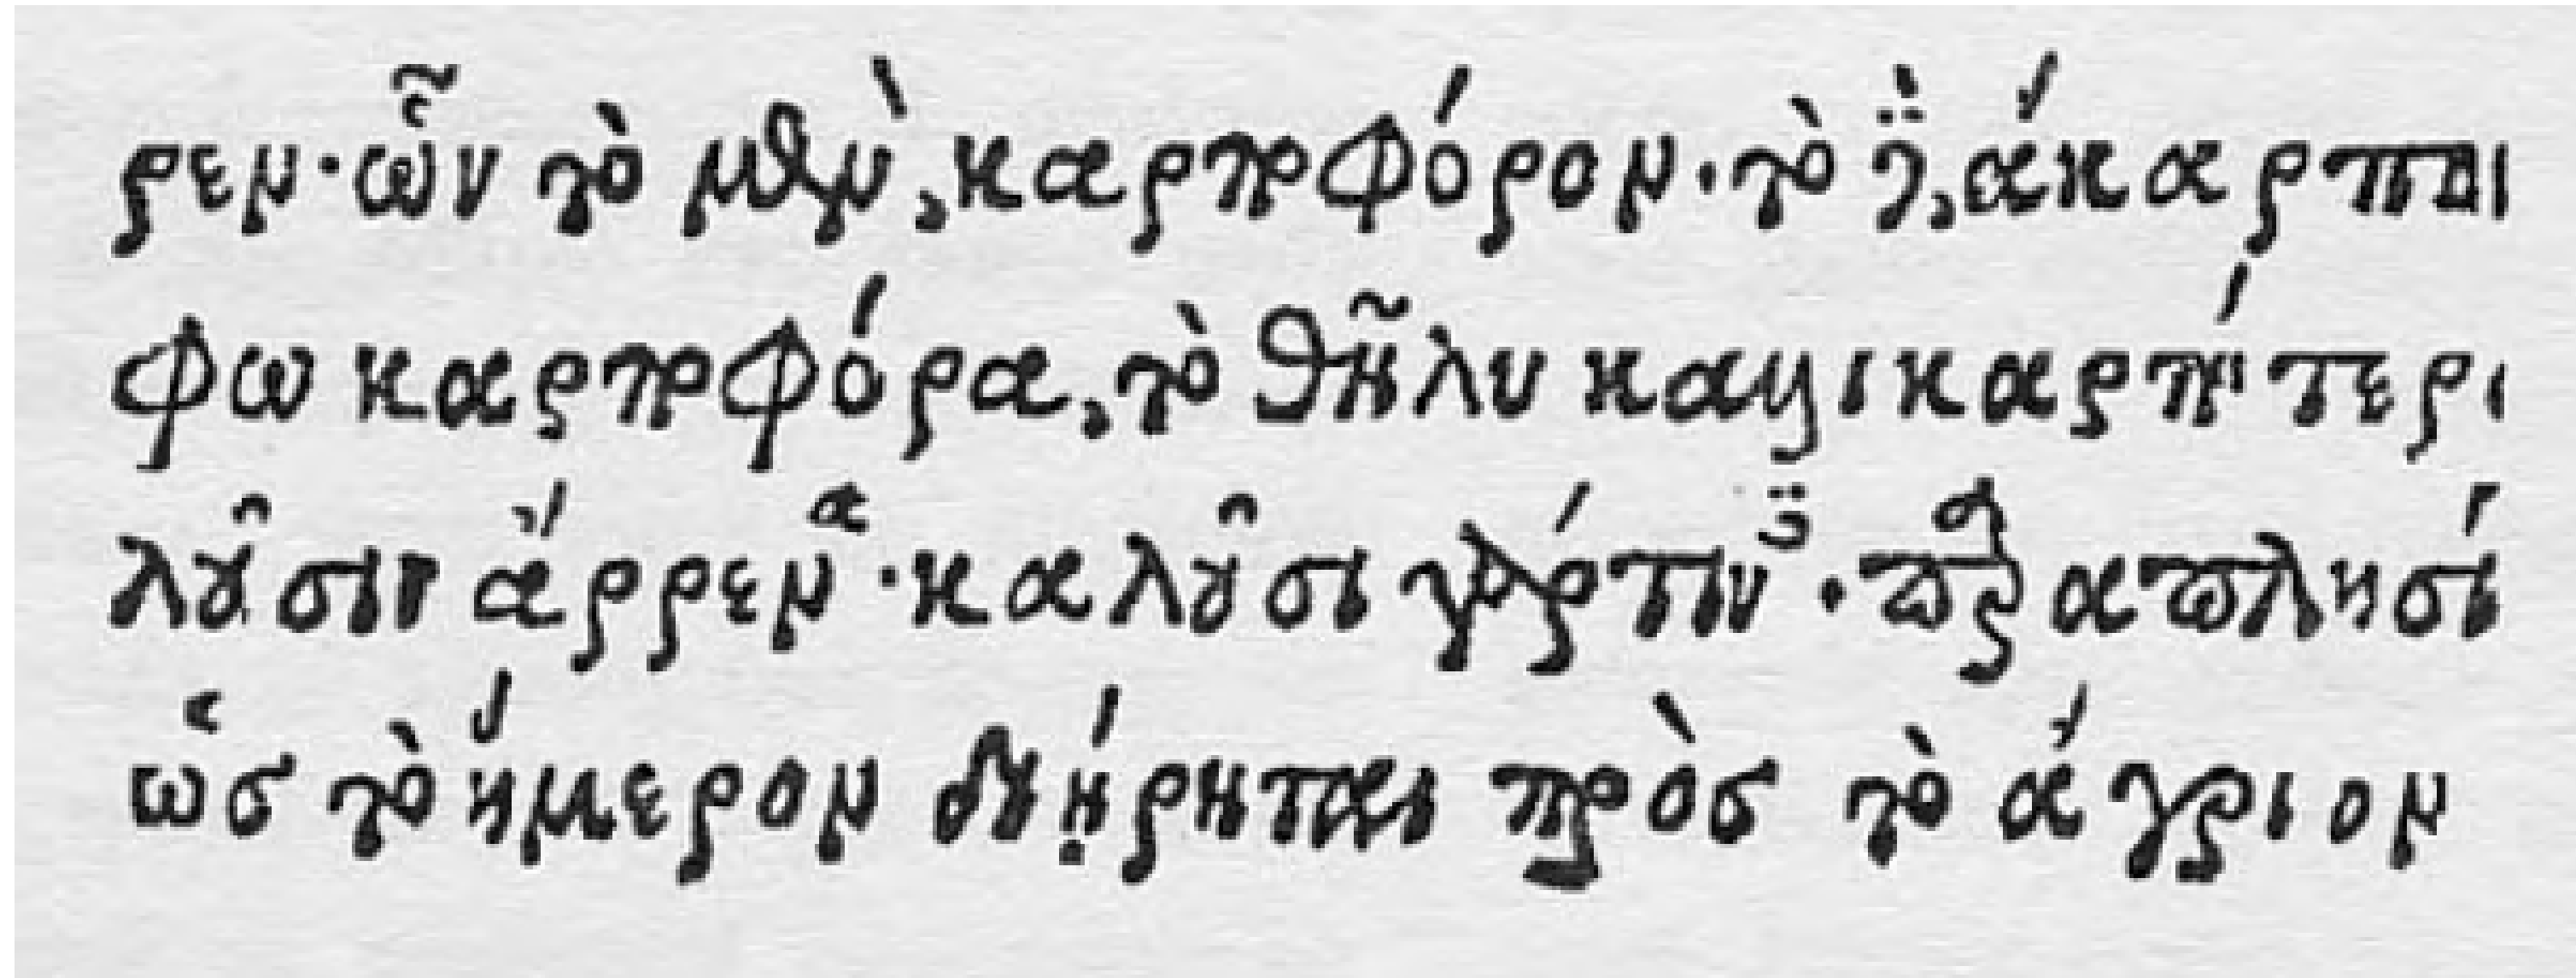 ρεν· ὧν τὸ μὲν, καρποφόρον· τὸ δὲ, ἄκαρπον
φω καρποφόρα, τὸ θῆλυ καλλικαρπότερο
λοῦσιν ἄρρενα· καλοῦσι γάρ τινες· παραπλησί
ὡς τὸ ἥμερον διῄρηται πρὸς τὸ ἄγριον